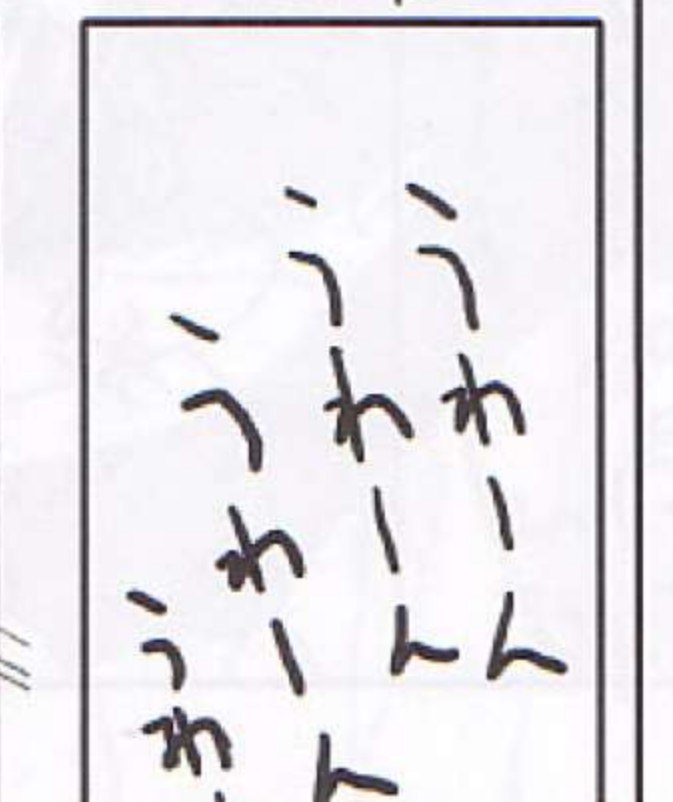 うわーん
うわーん
うわーん
うわ